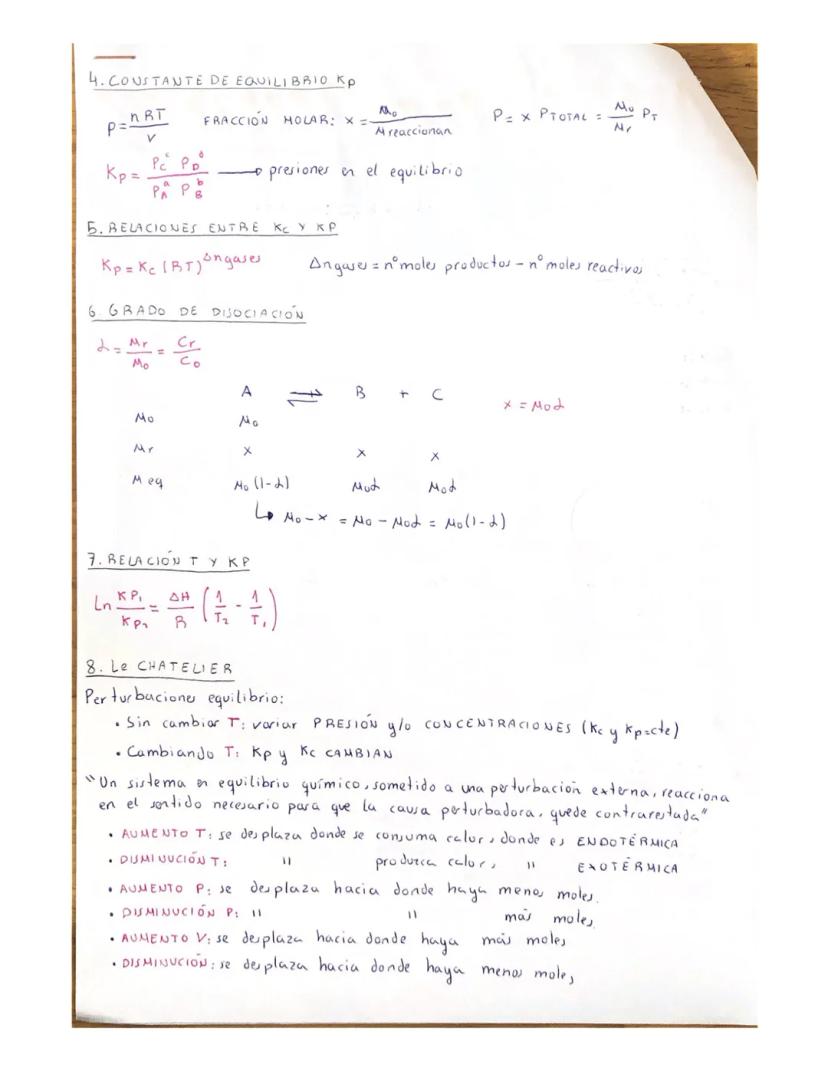 4. CONSTANTE DE EQUILIBRIO Kp
P = nRT / V FRACCIÓN MOLAR: x = M₀ / M reaccionan P = x PTOTAL = M₀ / Mr PT
Kp = Pc^c PD^d / PA^a PB^b → presiones en el equilibrio
5. RELACIONES ENTRE Kc Y KP
Kp = Kc (RT)^Δngases Δngases = nº moles productos - nº moles reactivos
6. GRADO DE DISOCIACIÓN
α = Mr / M₀ = Cr / C₀
A ⇌ B + C x = M₀α
M₀ M₀
Mr x x x
M eq M₀ (1-α) M₀α M₀α
↳ M₀ - x = M₀ - M₀α = M₀(1-α)
7. RELACIÓN T Y KP
Ln KP₁ / KP₂ = ΔH / R (1/T₂ - 1/T₁)
8. Le CHATELIER
Perturbaciones equilibrio:
• Sin cambiar T: variar PRESIÓN y/o CONCENTRACIONES (Kc y Kp=cte)
• Cambiando T: Kp y Kc CAMBIAN
"Un sistema en equilibrio químico, sometido a una perturbación externa, reacciona
en el sentido necesario para que la causa perturbadora, quede contrarestada"
• AUMENTO T: se desplaza donde se consuma calor, donde es ENDOTÉRMICA
• DISMINUCIÓN T: " produzca calor, " EXOTÉRMICA
• AUMENTO P: se desplaza hacia donde haya menos moles.
• DISMINUCIÓN P: " " más moles,
• AUMENTO V: se desplaza hacia donde haya más moles
• DISMINUCIÓN: se desplaza hacia donde haya menos moles